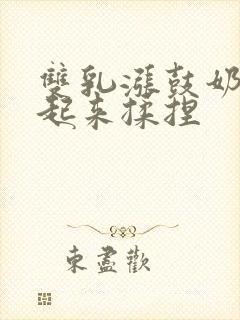 雙乳漲鼓奶
起來揉捏
東盡歡